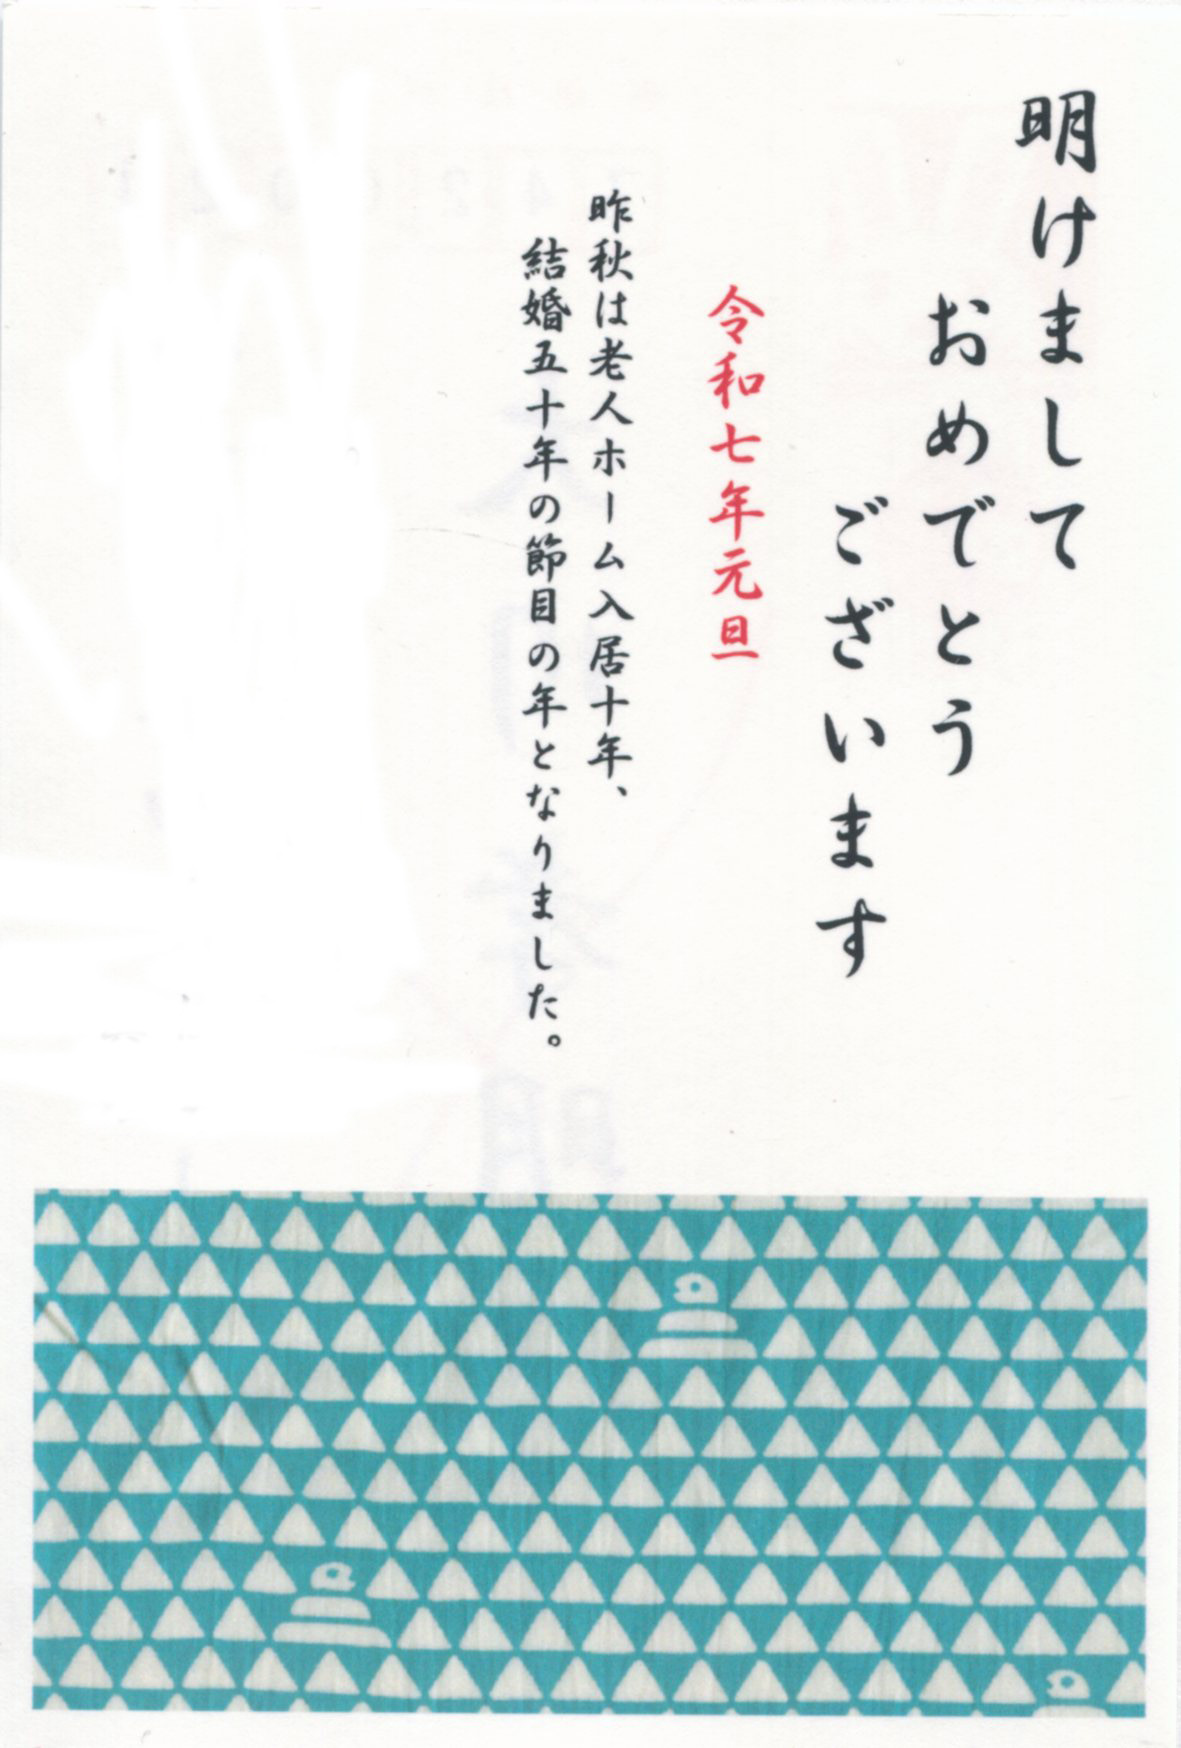 明けまして
おめでとう
ございます
令和七年元旦
昨秋は老人ホーム入居十年、
結婚五十年の節目の年となりました。